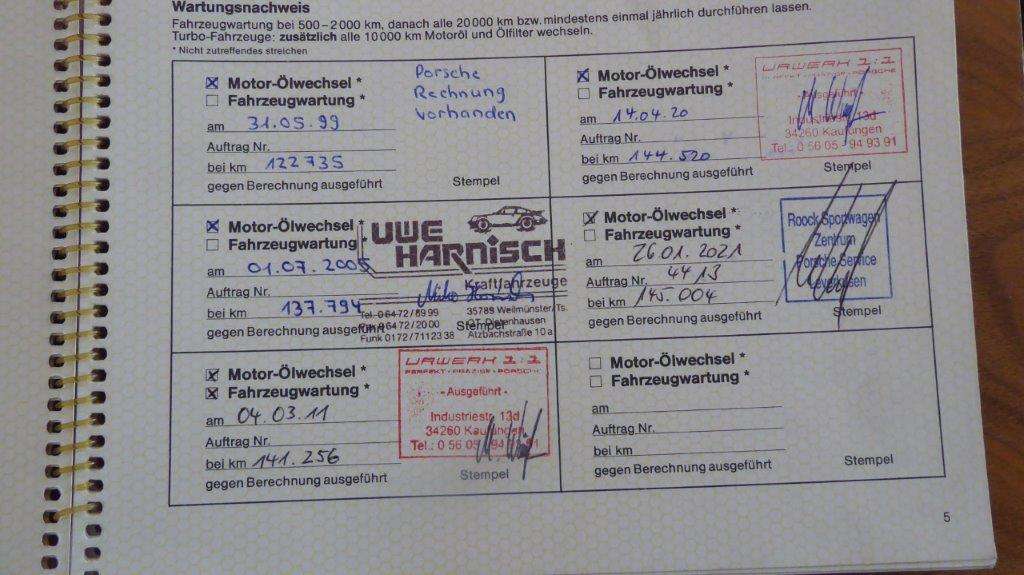 Wartungsnachweis
Fahrzeugwartung bei 500-2000 km, danach alle 20000 km bzw. mindestens einmal jährlich durchführen lassen.
Turbo-Fahrzeuge: zusätzlich alle 10000 km Motoröl und Ölfilter wechseln.
* Nicht zutreffendes streichen
Motor-Ölwechsel *
Fahrzeugwartung *
am 31.05.99
Auftrag Nr.
bei km 122735
gegen Berechnung ausgeführt
Porsche
Rechnung
vorhanden
Stempel
Motor-Ölwechsel *
Fahrzeugwartung *
am 14.04.20
Auftrag Nr.
bei km 144.520
gegen Berechnung ausgeführt
URWERK 1:1
- Ausgeführt -
Industriestr. 13d
34260 Kaufungen
Tel.: 0 56 05 94 93 91
Stempel
Motor-Ölwechsel *
Fahrzeugwartung
am 01.07.2005
Auftrag Nr.
bei km 137.794
gegen Berechnung ausgeführt
UWE
HARNISCH
Kraftfahrzeuge
Tel. 0 64 72 / 89 99
0 64 72 / 20 00
Funk 0172/71123 38
35789 Weilmünster/Ts
OT. Dietenhausen
Atzbachstraße 10 a
Stempel
Motor-Ölwechsel *
Fahrzeugwartung *
am 26.01.2021
Auftrag Nr. 4413
bei km 145.004
gegen Berechnung ausgeführt
Roock Sportwagen
Zentrum
Porsche Service
Leverkusen
Stempel
Motor-Ölwechsel *
Fahrzeugwartung *
am 04.03.11
Auftrag Nr.
bei km 141.256
gegen Berechnung ausgeführt
URWERK 1:1
PERFEKT - PRÄZISE - PORSCHE
- Ausgeführt -
Industriestr. 13d
34260 Kaufungen
Tel.: 0 56 05 94 93 91
Stempel
Motor-Ölwechsel *
Fahrzeugwartung *
am
Auftrag Nr.
bei km
gegen Berechnung ausgeführt
Stempel
5